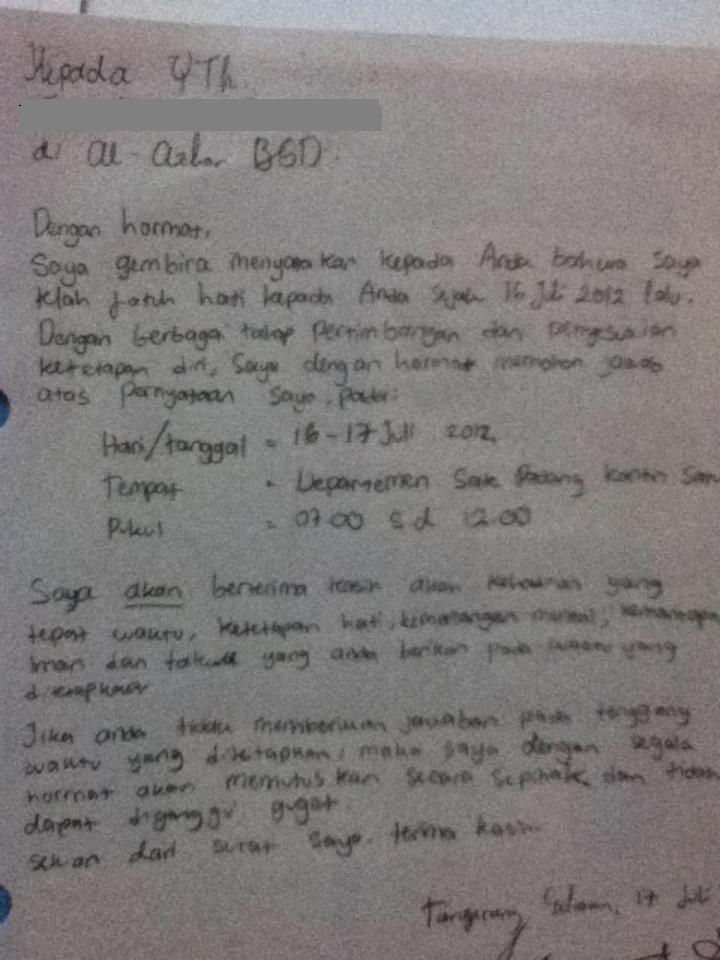 Kepada YTh.
di Al-Azhar BSD.
Dengan hormat,
Saya gembira menyatakan kepada Anda bahwa saya
telah jatuh hati kepada Anda sejak 16 Juli 2012 lalu.
Dengan berbagai tahap pertimbangan dan penyesuaian
ketetapan diri, saya dengan hormat memohon jawab
atas pernyataan saya, pada:
Hari/tanggal = 16-17 Juli 2012
Tempat = Departemen Sate Padang Kantin San
Pukul = 07.00 s.d 12.00
Saya akan berterima kasih akan kehadiran yang
tepat waktu, ketetapan hati, kematangan mental, kemantapan
iman dan yang anda berikan pada waktu yang
ditetapkan
Jika anda tidak memberikan jawaban pada tenggang
waktu yang ditetapkan, maka saya dengan segala
hormat akan memutuskan secara sepihak dan tidak
dapat diganggu gugat
sekian dari surat saya. terima kasih.
Tangerang Selatan, 17 Juli